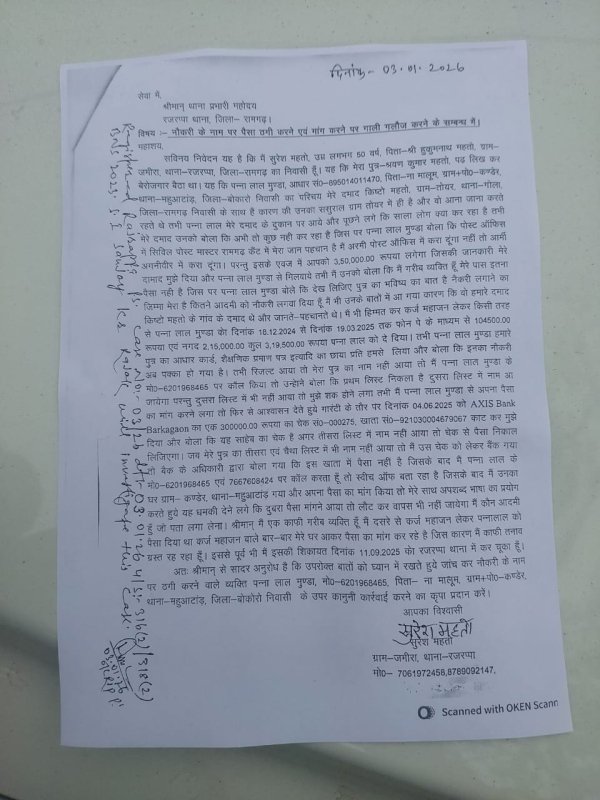 दिनांक- 03.01.2026
सेवा में,
श्रीमान् थाना प्रभारी महोदय
रजरप्पा थाना, जिला- रामगढ़।
विषय :- नौकरी के नाम पर पैसा ठगी करने एवं मांग करने पर गाली गलौज करने के सम्बन्ध में।
महाशय,
सविनय निवेदन यह है कि मैं सुरेश महतो, उम्र लगभग 50 वर्ष, पिता-श्री हुकुमनाथ महतो, ग्राम-
जमीरा, थाना-रजरप्पा, जिला-रामगढ़ का निवासी हूँ। यह कि मेरा पुत्र-श्रवण कुमार महतो, पढ़ लिख कर
बेरोजगार बैठा था। यह कि पन्ना लाल मुण्डा, आधार सं0-895014011470, पिता-ना मालूम, ग्राम+पो0-कण्डेर,
थाना-महुआटांड़, जिला-बोकारो निवासी का परिचय मेरे दमाद किष्टो महतो, ग्राम-तोयर, थाना-गोला,
जिला-रामगढ़ निवासी के साथ है कारण की उनका ससुराल ग्राम तोयर में ही है और वो आना जाना करते
रहते थे तभी पन्ना लाल मेरे दमाद के दुकान पर आये और पूछने लगे कि साला लोग क्या कर रहा है तभी
मेरे दमाद उनको बोला कि अभी तो कुछ नही कर रहा है जिस पर पन्ना लाल मुण्डा बोला कि पोस्ट ऑफिस
में सिविल पोस्ट मास्टर रामगढ़ कैंट में मेरा जान पहचान है मैं अरमी पोस्ट ऑफिस में करा दूंगा नहीं तो आर्मी
अगनीवीर में करा दूंगा। परन्तु इसके एवज में आपको 3,50,000.00 रूपया लगेगा जिसकी जानकारी मेरे
दामाद मुझे दिया और पन्ना लाल मुण्डा से मिलवाये तभी मैं उनको बोला कि मैं गरीब व्यक्ति हूँ मेरे पास इतना
पैसा नही है जिस पर पन्ना लाल मुण्डा बोले कि देख लिजिए पुत्र का भविष्य का बात है नैकरी लगाने का
जिम्मा मेरा है कितने आदमी को नौकरी लगवा दिया हूँ मैं भी उनके बातों में आ गया कारण कि वो हामरे दमाद
किष्टो महतो के गांव के दमाद थे और जानते-पहचानते थे। मैं भी हिम्मत कर कर्ज महाजन लेकर किसी तरह
से पन्ना लाल मुण्डा को दिनांक 18.12.2024 से दिनांक 19.03.2025 तक फोन पे के माध्यम से 104500.00
रूपया एवं नगद 2,15,000.00 कुल 3,19,500.00 रूपया पन्ना लाल को दे दिया। तभी पन्ना लाल मुण्डा हमारे
पुत्र का आधार कार्ड, शैक्षणिक प्रमाण पत्र इत्यादि का छाया प्रति हमसे लिया और बोला कि इनका नौकरी
अब पक्का हो गया है। तभी रिजल्ट आया तो मेरा पुत्र का नाम नहीं आया तो मैं पन्ना लाल मुण्डा के
मो0-6201968465 पर कॉल किया तो उन्होने बोला कि प्रथम लिस्ट निकला है दुसरा लिस्ट में नाम आ
जायेगा परन्तु दुसरा लिस्ट में भी नहीं आया तो मुझे शक होने लगा तभी मैं पन्ना लाल मुण्डा से अपना पैसा
का मांग करने लगा तो फिर से आश्वासन देते हुये गारंटी के तौर पर दिनांक 04.06.2025 को AXIS Bank
Barkagaon का एक 300000.00 रूपया का चेक सं0-000275, खाता सं0-921030004679067 काट कर मुझे
दिया और बोला कि यह साहेब का चेक है अगर तीसरा लिस्ट में नाम नहीं आया तो चेक से पैसा निकाल
लिजिएगा। जब मेरे पुत्र का तीसरा एवं चैथा लिस्ट में भी नाम नहीं आया तो मैं उस चेक को लेकर बैंक गया
तो बैंक के अधिकारी द्वारा बोला गया कि इस खाता में पैसा नहीं है जिसके बाद मैं पन्ना लाल के
मो0-6201968465 एवं 7667608424 पर कॉल करता हूँ तो स्वीच ऑफ बता रहा है जिसके बाद मैं उनका
घर ग्राम- कण्डेर, थाना-महुआटांड़ गया और अपना पैसा का मांग किया तो मेरे साथ अपशब्द भाषा का प्रयोग
करते हुये यह धमकी देने लगे कि दुबरा पैसा मांगने आया तो लौट कर वापस भी नहीं जायेगा मैं कौन आदमी
हूँ जो पता लगा लेना। श्रीमान् मैं एक काफी गरीब व्यक्ति हूँ मैं दसरे से कर्ज महाजन लेकर पन्नालाल को
पैसा दिया था कर्ज महाजन वाले बार-बार मेरे घर आकर पैसा का मांग कर रहे है जिस कारण मैं काफी तनाव
ग्रस्त रह रहा हूँ। इससे पूर्व भी मैं इसकी शिकायत दिनांक 11.09.2025 को रजरप्पा थाना में कर चूका हूँ।
अतः श्रीमान् से सादर अनुरोध है कि उपरोक्त बातों को ध्यान में रखते हुये जांच कर नौकरी के नाम
पर ठगी करने वाले व्यक्ति पन्ना लाल मुण्डा, मो0-6201968465, पिता- ना मालूम, ग्राम+पो0-कण्डेर,
थाना-महुआटांड़, जिला-बोकोरो निवासी के उपर कानुनी कार्रवाई करने का कृपा प्रदान करें।
आपका विश्वासी
सुरेश महतो
सुरेश महतो
ग्राम-जमीरा, थाना-रजरप्पा
मो0- 7061972458,8789092147,
Scanned with OKEN Scann
Registered Rajrappa P.S. Case No:- 03/26 dt:- 03.01.26 U/S:- 316(2)/318(2)
BNS 2023. S.I will investigate this case
03.01.26